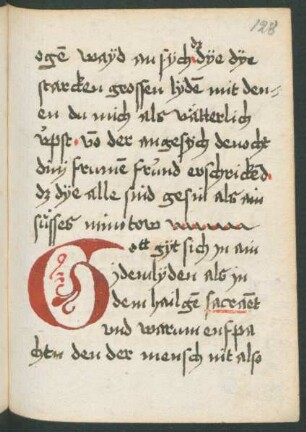 128
ogē wayd an sych dz dye dye
starcken grossen lyden mit den=
en du mich als vätterlich
vͤpst · vō der angesych dennocht
din frumē frund erschrickēd ·
dz dye alle sind gesin als ain
süsses mintow
Gott gyt sich in ain
ydem lyden als in
dem hailgē sacramēt
vnd warum enfpa
cht den der mensch nit also